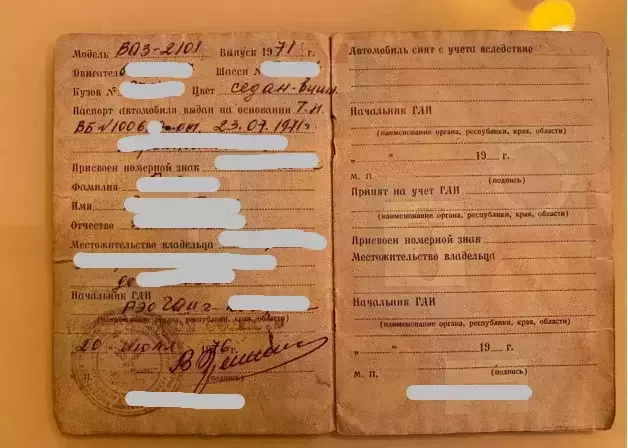 Модель ВАЗ-2101 Выпуск 1971 г.
Двигатель Шасси №
Кузов № Цвет седан-вишн.
Паспорт автомобиля выдан на основании Т.п.
23.07.1971г.
Присвоен номерной знак
Фамилия
Имя
Отчество
Местожительство владельца
Начальник ГАИ
РЭО ГАИ г.
(наименование органа, республики, края, области)
20 июля 1976 г.
М. П. (подпись)
Автомобиль снят с учета вследствие
Начальник ГАИ
(наименование органа, республики, края, области)
„ “ 19 г.
М. П. (подпись)
Принят на учет ГАИ
(наименование органа, республики, края, области)
Присвоен номерной знак
Местожительство владельца
Начальник ГАИ
(наименование органа, республики, края, области)
„ “ 19 г.
М. П. (подпись)